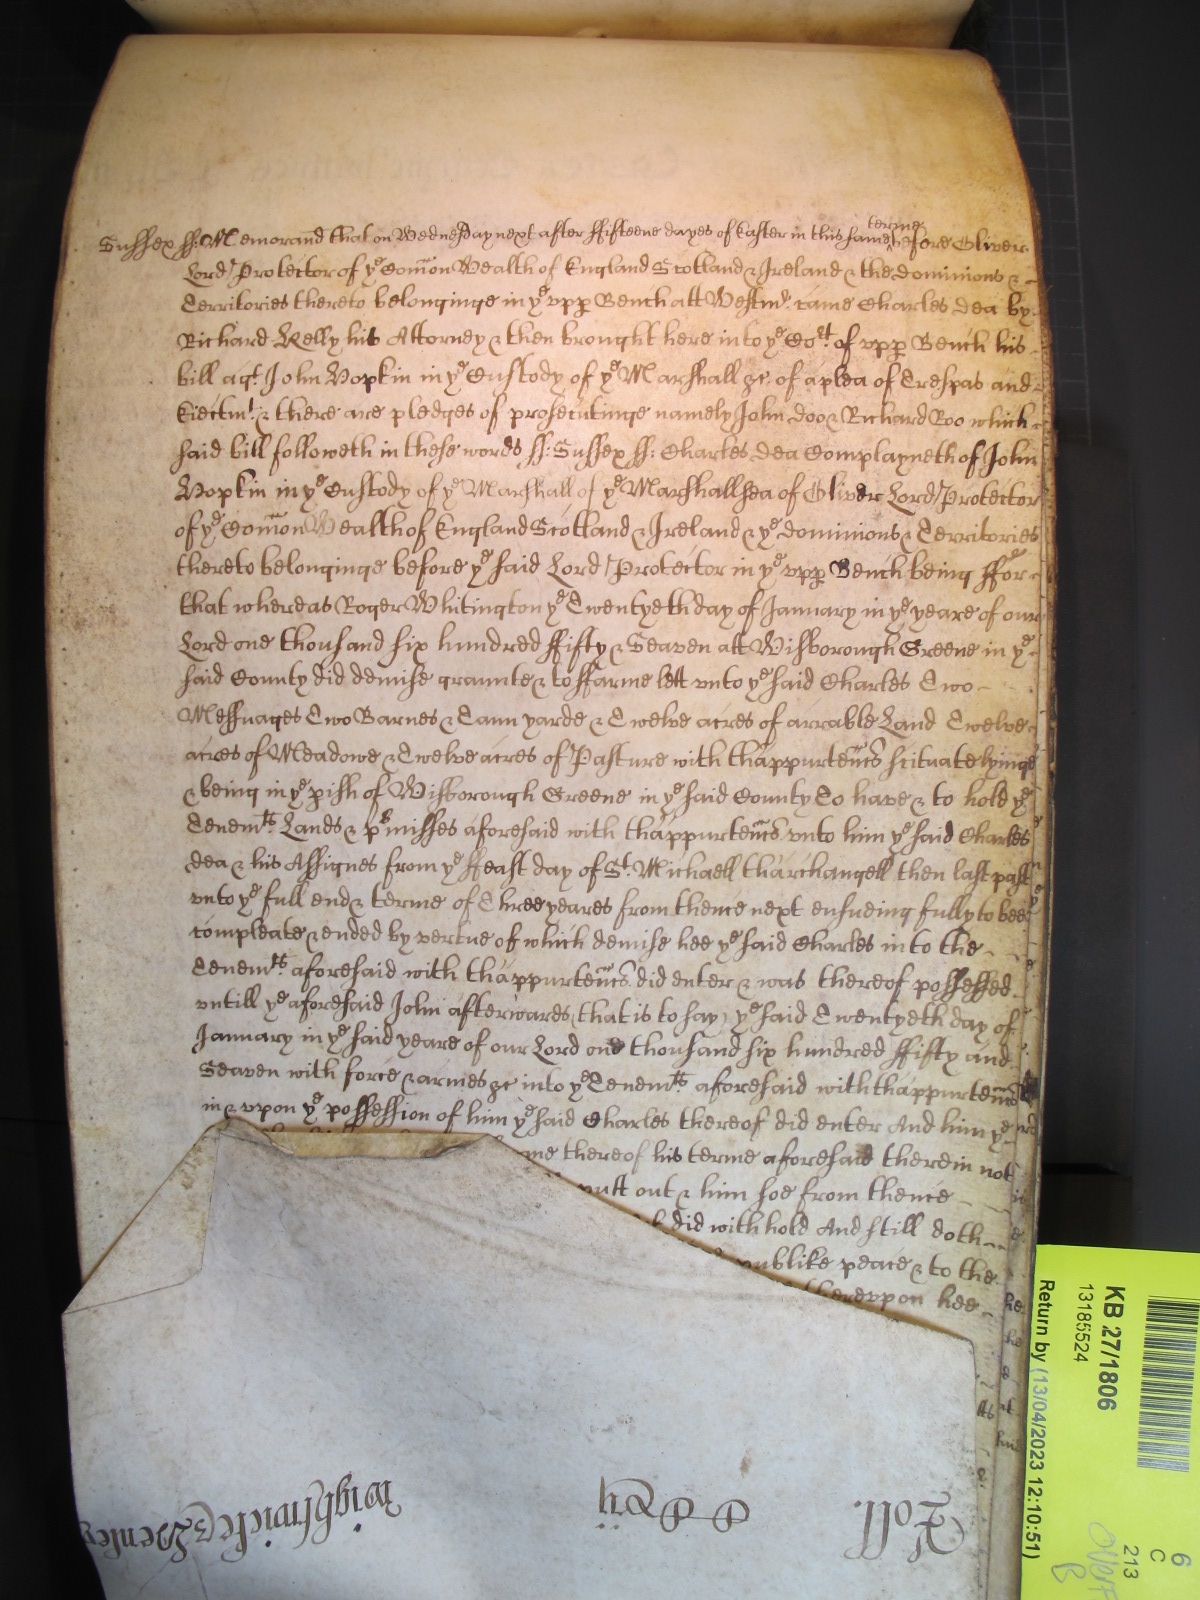 terme
Sussex ss: Memorand that on Wednesday next after ffifteene dayes of Easter in this same before Oliver
Lord Protector of ye Comon Wealth of England Scotland & Ireland & the dominions &
Territories thereto belonginge in ye vpp Bench att Westmr. came Charles Dea by
Richard Kelly his Attorney & then brought here into ye Cort. of vpp Bench his
bill agt. John Hopkin in ye Custody of ye Marshall &c. of a plea of Trespas and
Eiectmt. & there are pledges of prosecutinge namely John Doo & Richard Roo which
said bill followeth in these words ss: Sussex ss: Charles Dea Complayneth of John
Hopkin in ye Custody of ye Marshall of ye Marshallsea of Oliver Lord Protector
of ye Comon Wealth of England Scotland & Ireland & ye dominions & Territories
thereto belonginge before ye said Lord Protector in ye vpp Bench being ffor
that whereas Roger Whitington ye Twentyeth day of January in ye yeare of our
Lord one thousand six hundred ffifty & Seaven att Wisborough Greene in ye
said County did demise graunte & to ffarme lett vnto ye said Charles Two
Messuages Two Barnes & Tann yarde & Twelve acres of arrable Land Twelve
acres of Meadowe & Twelve acres of Pasture with thappurtencs scituate lyinge
& being in ye pish of Wisborough Greene in ye said County To have & to hold ye
Tenemts. Lands & pmisses aforesaid with thappurtencs vnto him ye said Charles
dea & his Assignes from ye ffeast day of St. Michaell tharchangell then last past
vnto ye full end & terme of Three yeares from thence next ensueing fully to bee
compleate & ended by vertue of which demise hee ye said Charles into the
Tenemts. aforesaid with thappurtencs. did enter & was thereof possessed
vntill ye aforesaid John afterwards (that is to say) ye said Twentyeth day of
January in ye said yeare of our Lord one thousand six hundred ffifty and
Seaven with force & armes &c into ye Tenemts aforesaid with thappurtencs
in & vpon ye possession of him ye said Charles thereof did enter And him ye
me thereof his terme aforesaid therein not
putt out & him soe from thence
did withhold And still doth
publike peace & to the
therevpon hee
Roll.
wightwicke & Henley
KB 27/1806
13185524
Return by (13/04/2023 12:10:51)
6
C
213
Over
B